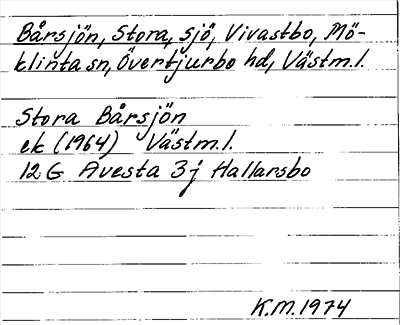 Bårsjön, Stora, sjö, Vivastbo, Mö-
klinta sn, Övertjurbo hd, Västm.l.
Stora Bårsjön
ek (1964) Västm.l.
12 G Avesta 3 j Hallarsbo
K.M. 1974